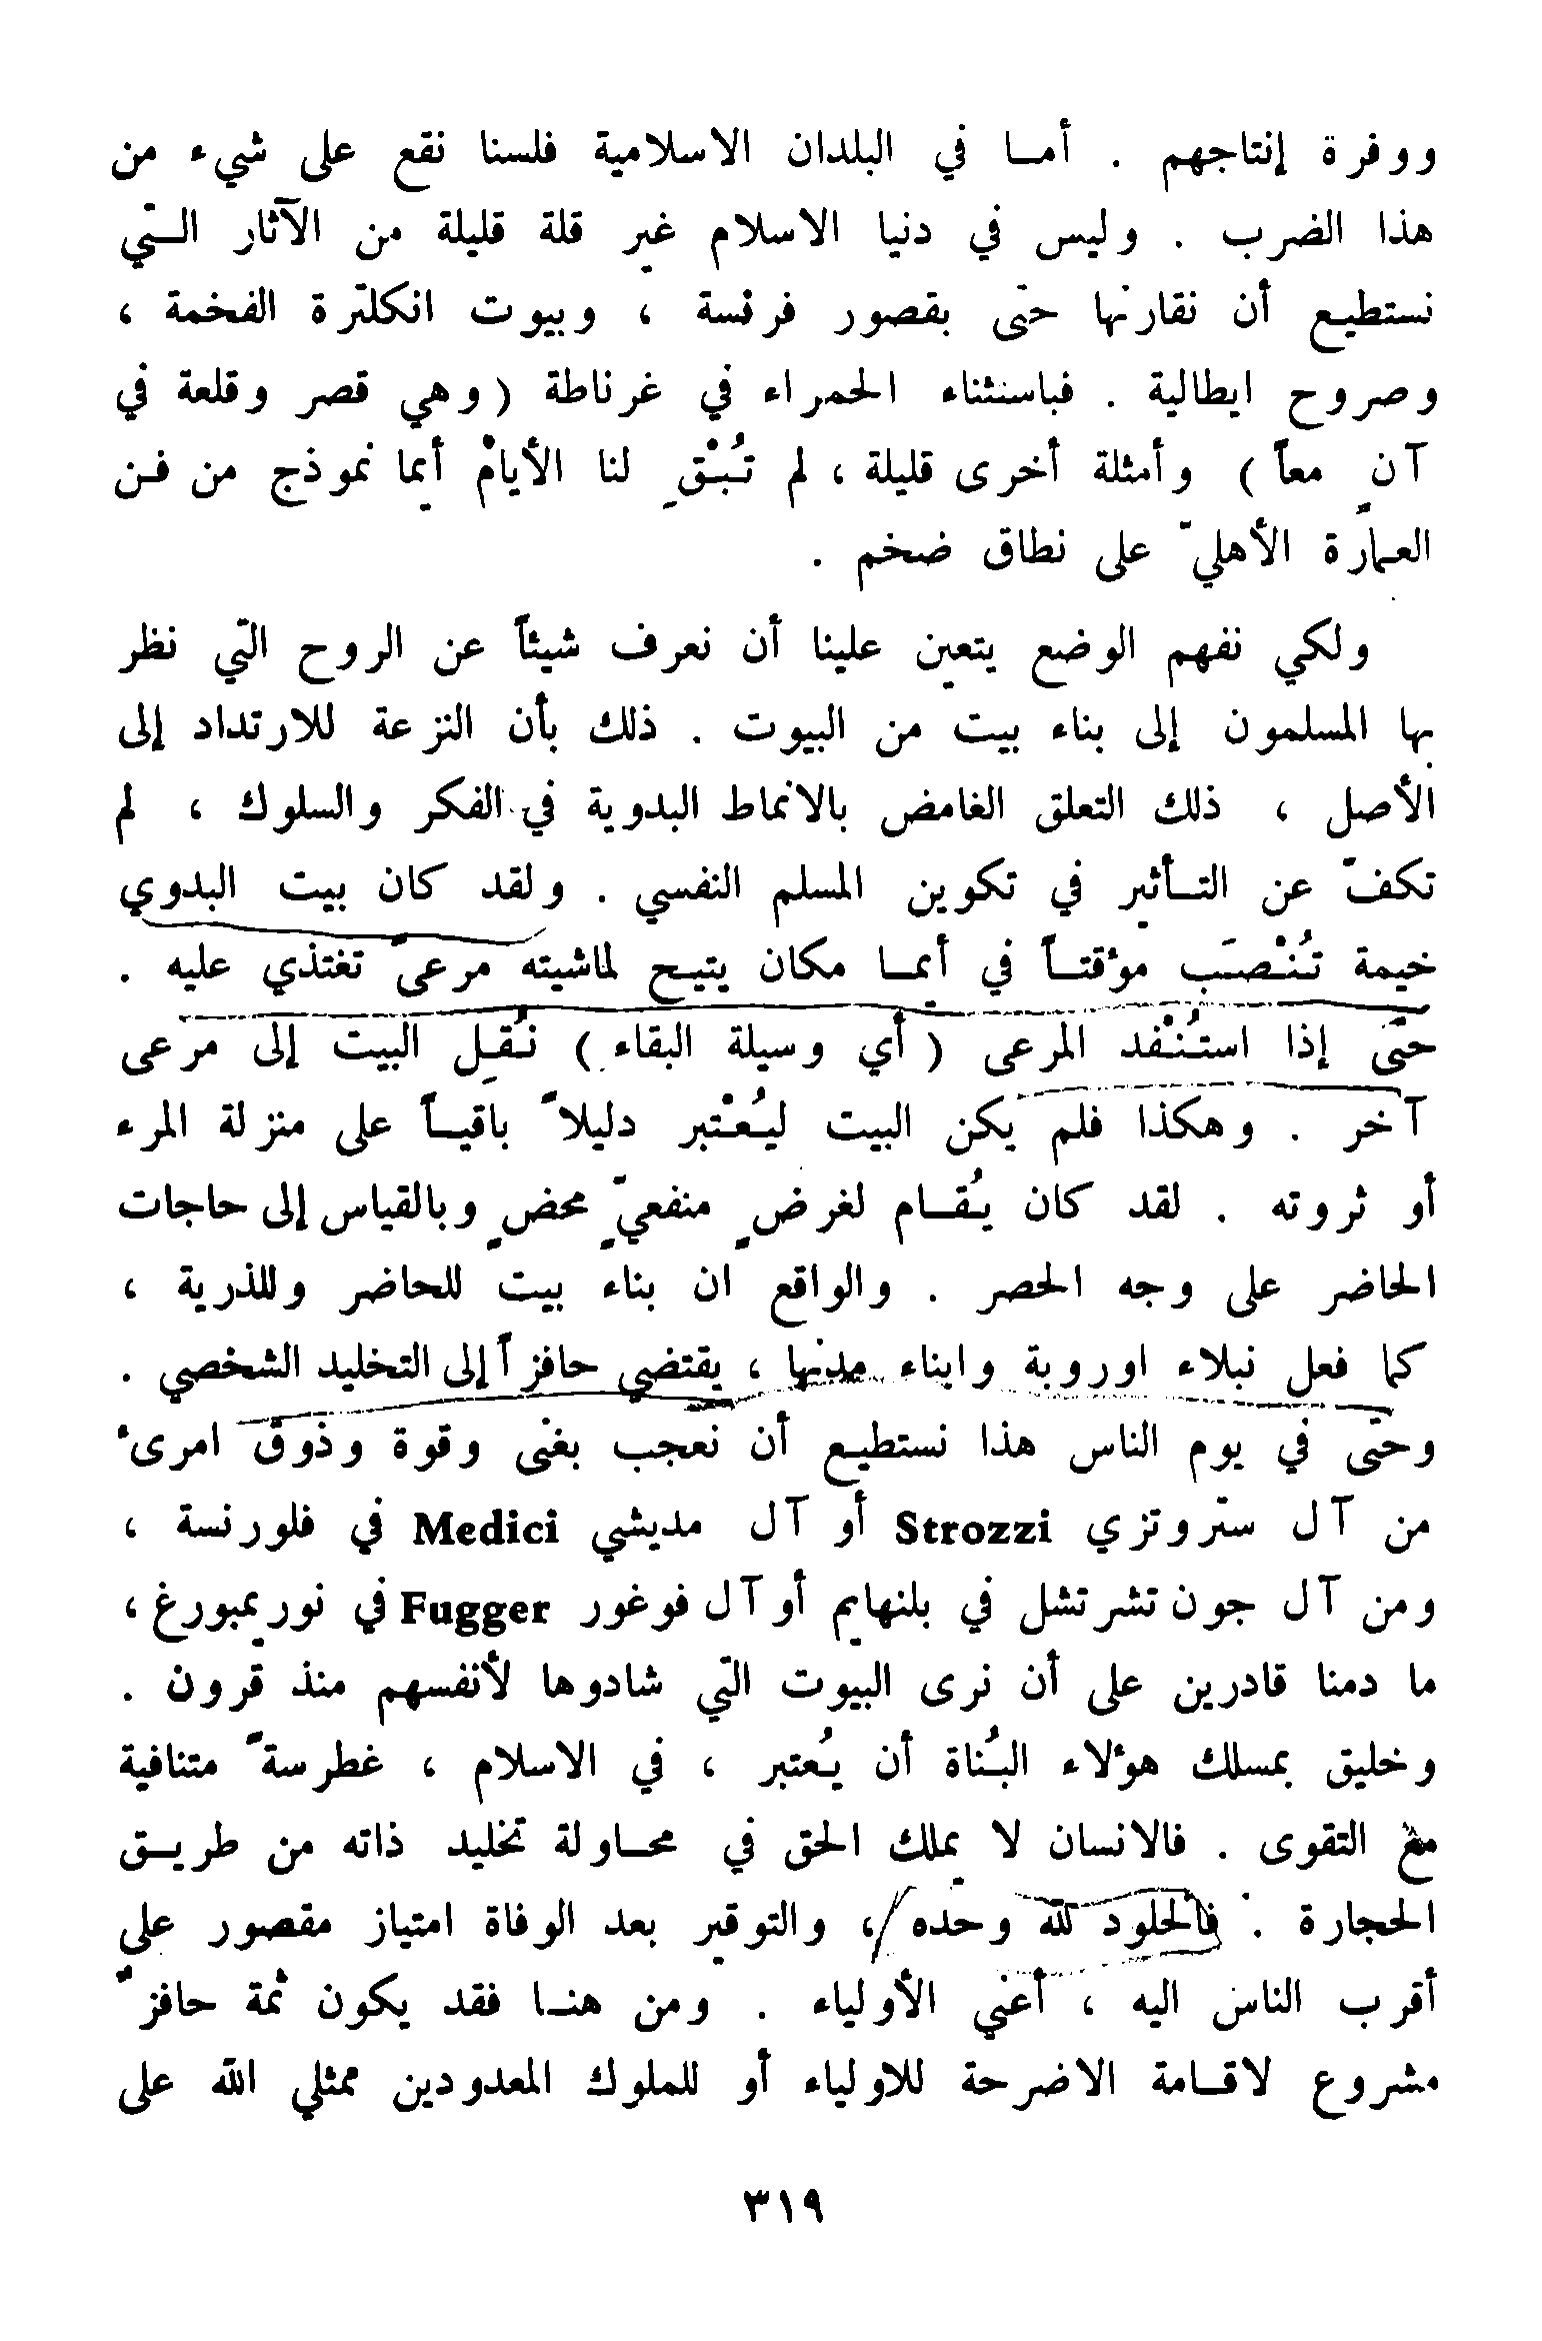 ووفرة إنتاجهم . أمـا في البلدان الاسلامية فلسنا نقع على شيء من
هذا الضرب . وليس في دنيا الاسلام غير قلة قليلة من الآثار الـتي
نستطيـع أن نقارنها حتى بقصور فرنسة ، وبيوت انكلترة الفخمة ،
وصروح ايطالية . فباستثناء الحمراء في غرناطة ( وهي قصر وقلعة في
آنٍ معاً ) وأمثلة أخرى قليلة ، لم تُبْقِ لنا الأيامْ أيما نموذج من فـن
العمارة الأهليّ على نطاق ضخم .
ولكي نفهم الوضع يتعين علينا أن نعرف شيئاً عن الروح التي نظر
بها المسلمون إلى بناء بيت من البيوت . ذلك بأن النزعة للارتداد إلى
الأصل ، ذلك التعلق الغامض بالانماط البدوية في الفكر والسلوك ، لم
تكفّ عن التـأثير في تكوين المسلم النفسي . ولقد كان بيت البدوي
خيمة تُنْصَب مؤقتـاً في أيمـا مكان يتيـح لماشيته مرعىً تغتذي عليه .
حتى إذا استُنْفد المرعى ( أي وسيلة البقاء ) نُقِل البيت إلى مرعى
آخر . وهكذا فلم يكن البيت ليُعْتبر دليلاً باقيـاً على منزلة المرء
أو ثروته . لقد كان يُقـام لغرضٍ منفعيٍّ محضٍ وبالقياس إلى حاجات
الحاضر على وجه الحصر . والواقع ان بناء بيت للحاضر وللذرية ،
كما فعل نبلاء اوروبة وابناء مدنها ، يقتضي حافزاً إلى التخليد الشخصي .
وحتى في يوم الناس هذا نستطيـع أن نعجب بغنى وقوة وذوق امرىء
من آل ستروتزي Strozzi أو آل مديشي Medici في فلورنسة ،
ومن آل جون تشرتشل في بلنهايم أو آل فوغور Fugger في نوريمبورغ ،
ما دمنا قادرين على أن نرى البيوت التي شادوها لأنفسهم منذ قرون .
وخليق بمسلك هؤلاء البُناة أن يُعتبر ، في الاسلام ، غطرسةً متنافية
مع التقوى . فالانسان لا يملك الحق في محـاولة تخليد ذاته من طريـق
الحجارة . فالخلود لله وحده ، والتوقير بعد الوفاة امتياز مقصور على
أقرب الناس اليه ، أعني الأولياء . ومن هنـا فقد يكون ثمة حافزٌ
مشروع لاقـامة الاضرحة للاولياء أو للملوك المعدودين ممثلي الله على
٣١٩